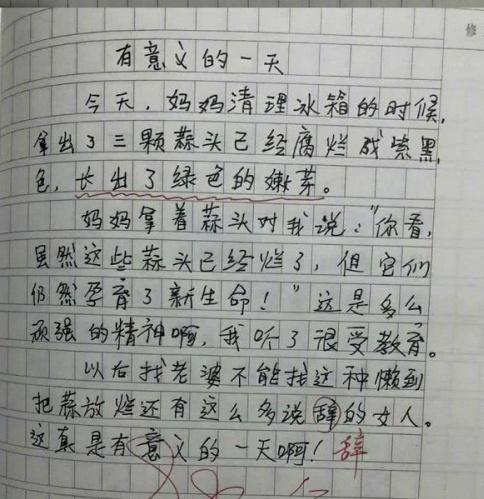 有意义的一天
今天，妈妈清理冰箱的时候，
拿出了三颗蒜头已经腐烂成紫黑
色，长出了绿色的嫩芽。
妈妈拿着蒜头对我说："你看，
虽然这些蒜头已经烂了，但它们
仍然孕育了新生命！"这是多么
顽强的精神啊，我听了很受教育。
以后找老婆不能找这种懒到
把蒜放烂还有这么多说辞的女人。
这真是有意义的一天啊！辞
修